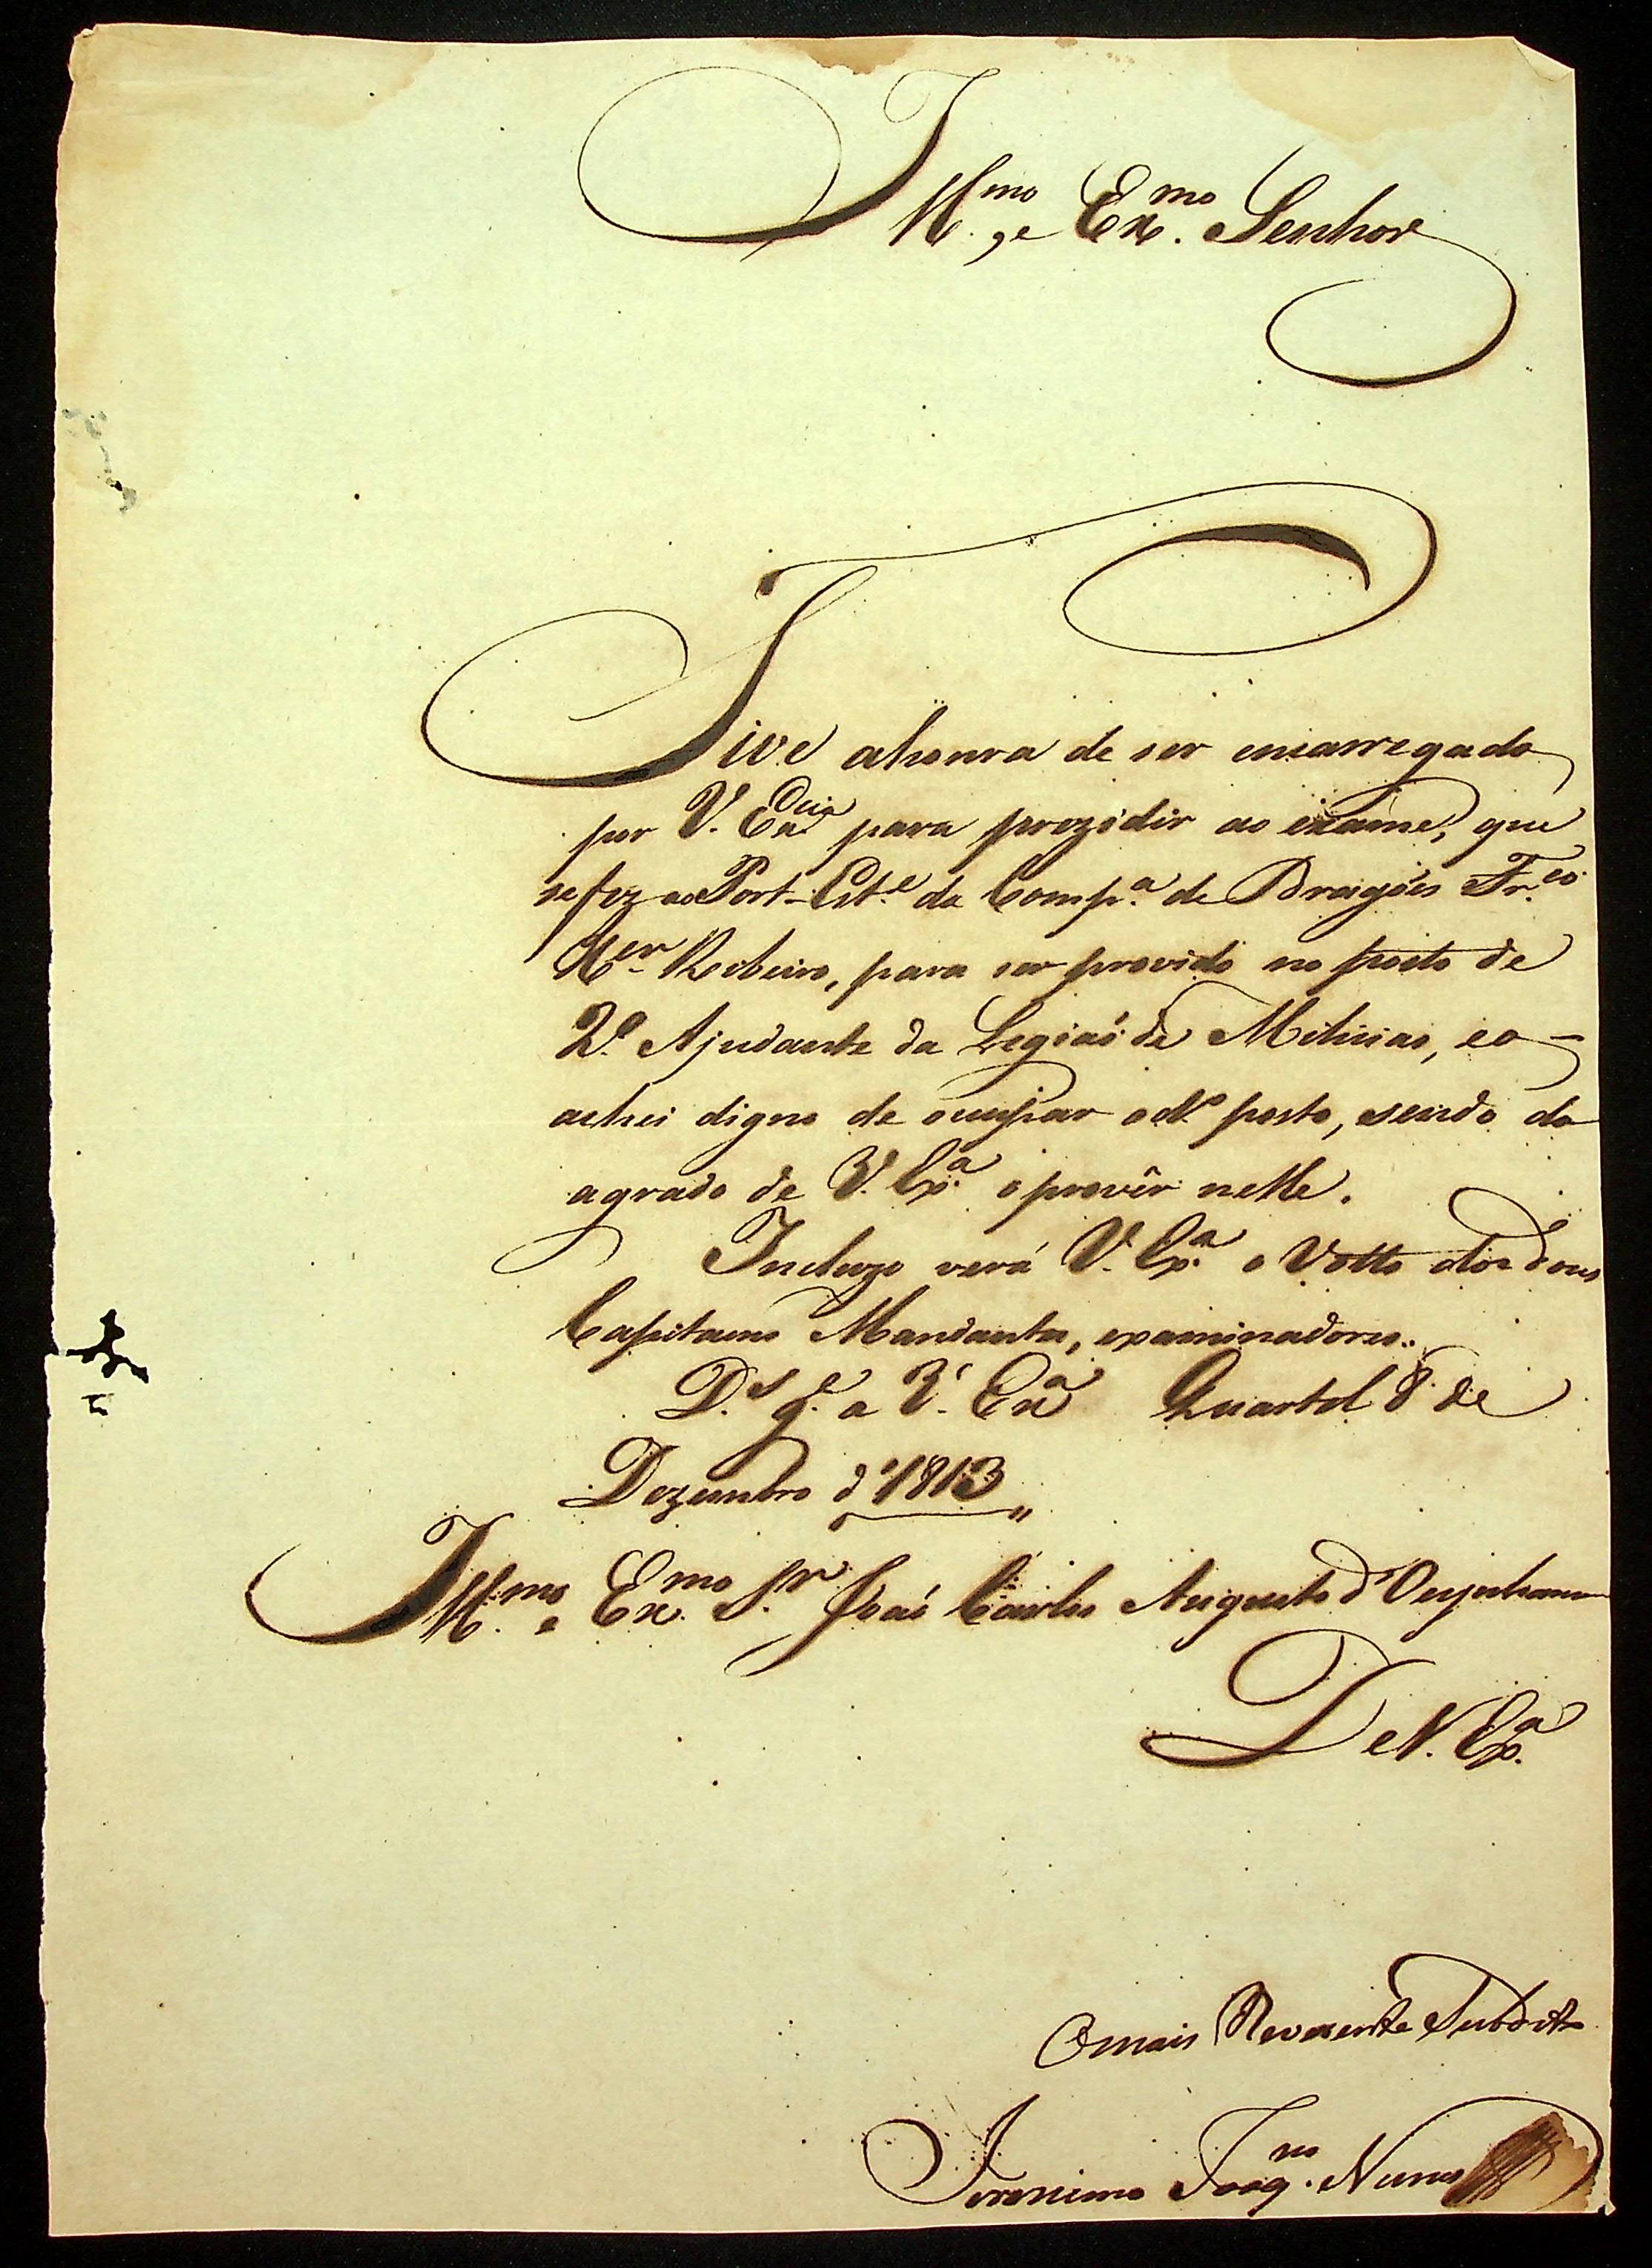 Illmo. e Exmo. Senhor
Tive ahonra de ser encarregado
por V. Excia para prezidir ao exame, que
sefez ao Port-Este. da Compa. de Dragões Frco.
Xer Ribeiro, para ser provido no posto de
2º Ajudante da Legiaõ de Milicias, eo
achei digno de ocupar odº. posto, sendo do
agrado de V. Exa. o provêr nelle.
Incluzo verá V. Exa. o Votto dos dous
Capitaens Mandantes, examinadores.
D.s g.e a V. Exa Quartel 8 de
Dezembro d'1813
Illmo. e Exmo. Sr. Joaõ Carlos Augusto d'Oeynhausen
De V. Exa.
Omais Reverente Subdito
Jeronimo Joaqm. Nunes